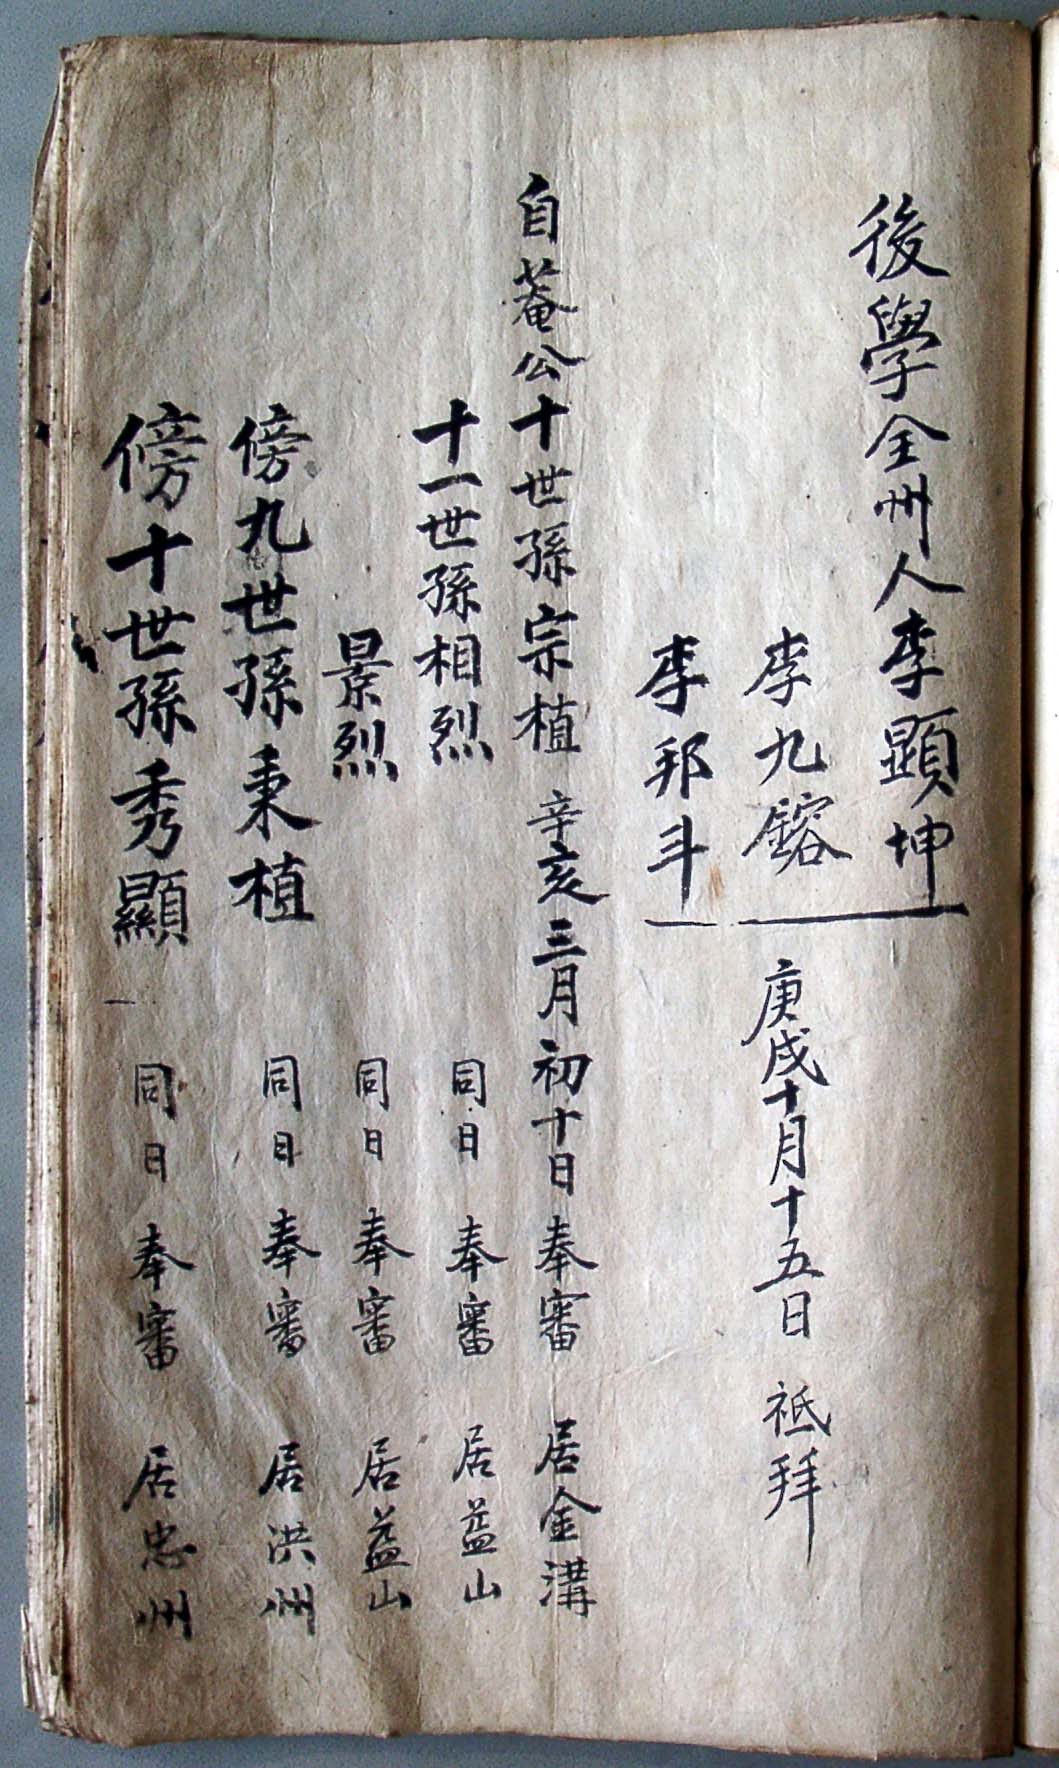 後學全州人李顯坤
李九鎔 庚戌十月十五日 祗拜
李邦斗
自菴公十世孫宗植 辛亥三月初十日 奉審 居金溝
十一世孫相烈 同日 奉審 居益山
景烈 同日 奉審 居益山
傍九世孫秉植 同日 奉審 居洪州
傍十世孫秀顯 同日 奉審 居忠州